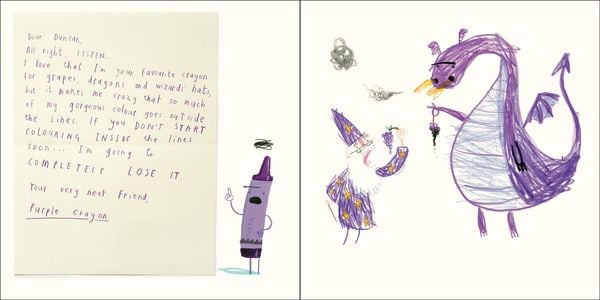 Dear Duncan,
All right, LISTEN.
I love that I'm your favourite crayon
for grapes, dragons and wizards' hats,
but it makes me crazy that so much
of my gorgeous colour goes outside
the lines. If you DON'T START
COLOURING INSIDE the lines
soon... I'm going to
COMPLETELY LOSE IT.
Your very neat friend,
Purple crayon